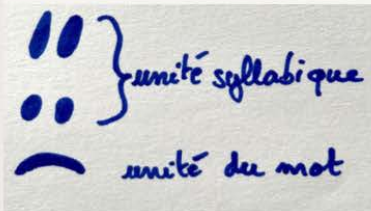 unité syllabique
unité du mot